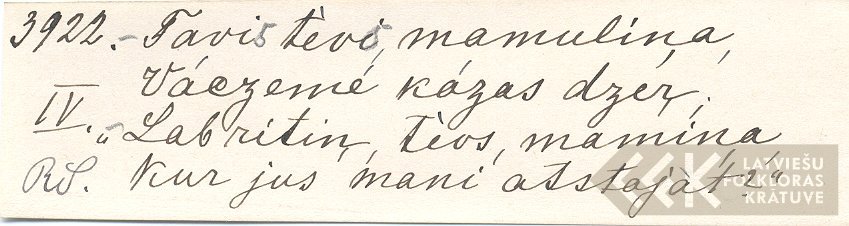 3922. - Tavis tèvis, mamulina,
Váczemé kázas dzér,
IV. "- Labritin, tèvs, mamina,
RS. Kur jus mani atstaját?"
LATVIEŠU
FOLKLORAS
KRĀTUVE